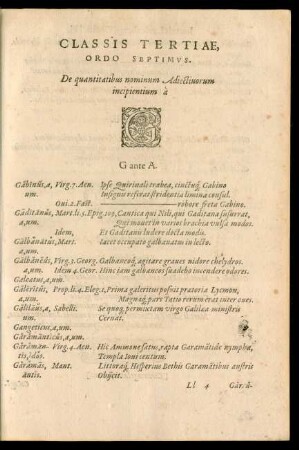 CLASSIS TERTIAE,
ORDO SEPTIMVS.
De quantitatibus nominum Adiectiuorum
incipientium à
G
G ante A.
Găbīnŭs,a, Virg.7.Aen. Ipse Quirinali trabea, cinctuq́; Gabino
um. Insignis reserat stridentia limina consul.
Oui.2.Fast. robore freta Gabino.
Gādītānŭs, Mart.li.5.Epig. Cantica qui Nili, qui Gaditana susurrat,
a,um. Qui mouet in varios brachia vulsa modos.
Idem, Et Gaditanis ludere docta modis.
Galbănātŭs, Mart. Iacet occupato galbanatus in lecto.
a,um.
Galbănĕŭs, Virg.3.Georg. Galbaneoq́; agitare graues nidore chelydros.
a,um. Idem 4.Geor. Hinc iam galbaneos suadebo incendere odores.
Galeatus,a,um.
Prop.li.4.Eleg.1, Prima galeritus posuit prætoria Lycmon,
a,um. Magnaq́; pars Tatio rerum erat inter oues.
a, Sabelli. Gallica ministris
um. Cernat.
Gangeticus,a,um.
Gărămānticus,a,um.
Gărăman- Virg.4.Aen. Hic Ammone satus, rapta Garamātide nympha,
tis,ĭdŭs. Templa Ioui centum.
Gărămās, Mant. Hesperius Bethis Garamātibus austris
āntis. Obijcit.
Ll 4 Găr.ă-